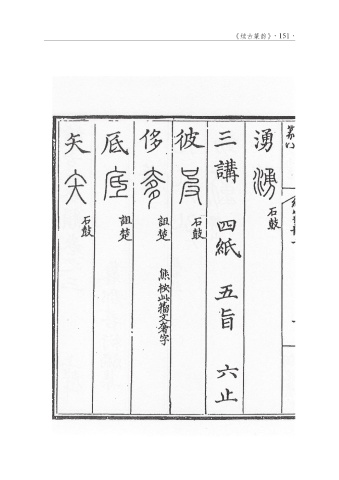 《续古篆韵》·151·
湧 石鼓
三講 四紙 五旨 六止
彼 石鼓
侈 詛楚 熊按此籀文奢字
底 詛楚
矢 石鼓